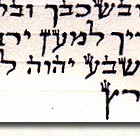 ובשכבך וב
ריך למען יר
שבע יהוה ל
רץ